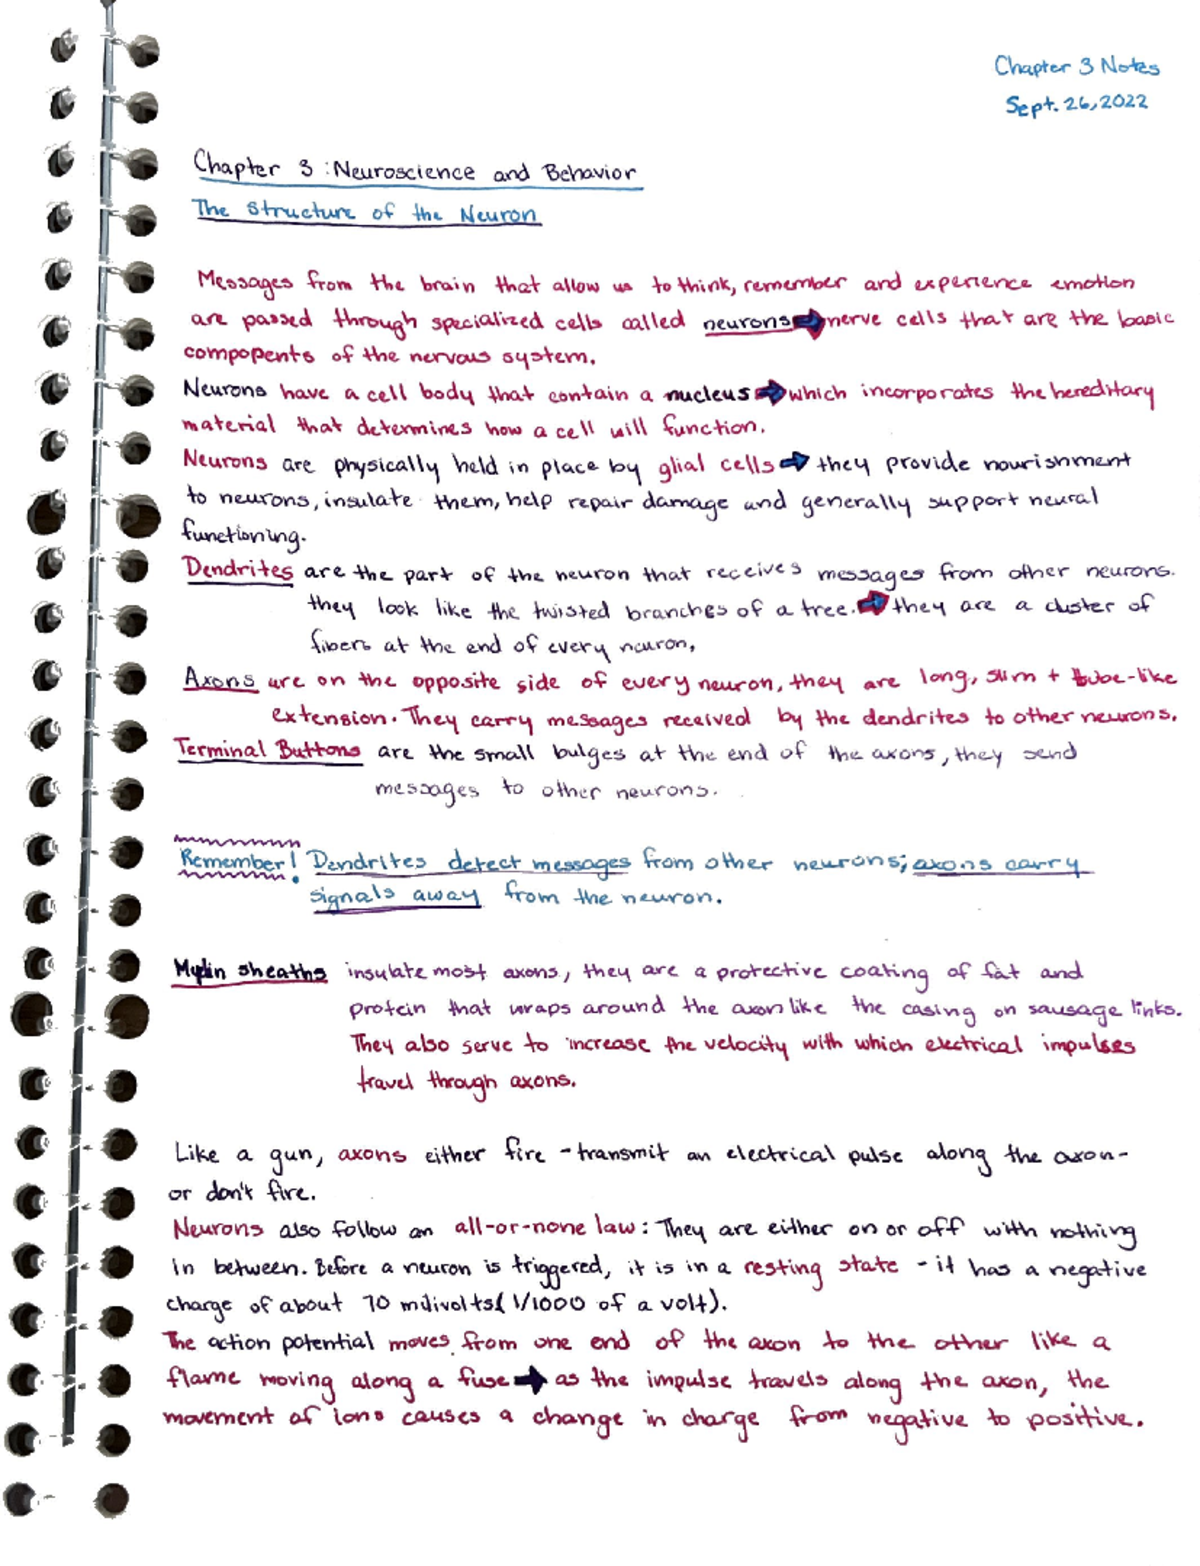 Chapter 3 Notes
Sept. 26, 2022
Chapter 3 : Neuroscience and Behavior
The Structure of the Neuron
Messages from the brain that allow us to think, remember and experience emotion
are passed through specialized cells called neurons → nerve cells that are the basic
compopents of the nervous system.
Neurons have a cell body that contain a nucleus → which incorporates the hereditary
material that determines how a cell will function.
Neurons are physically held in place by glial cells → they provide nourishment
to neurons, insulate them, help repair damage and generally support neural
functioning.
Dendrites are the part of the neuron that receives messages from other neurons.
they look like the twisted branches of a tree. → they are a cluster of
fibers at the end of every neuron,
Axons are on the opposite side of every neuron, they are long, slim + tube-like
extension. They carry messages received by the dendrites to other neurons.
Terminal Buttons are the small bulges at the end of the axons, they send
messages to other neurons.
Remember! Dendrites detect messages from other neurons; axons carry
signals away from the neuron.
Mylin sheaths insulate most axons, they are a protective coating of fat and
protein that wraps around the axon like the casing on sausage links.
They also serve to increase the velocity with which electrical impulses
travel through axons.
Like a gun, axons either fire - transmit an electrical pulse along the axon -
or don't fire.
Neurons also follow an all-or-none law: They are either on or off with nothing
in between. Before a neuron is triggered, it is in a resting state - it has a negative
charge of about 70 milivolts (1/1000 of a volt).
The action potential moves from one end of the axon to the other like a
flame moving along a fuse → as the impulse travels along the axon, the
movement of ions causes a change in charge from negative to positive.